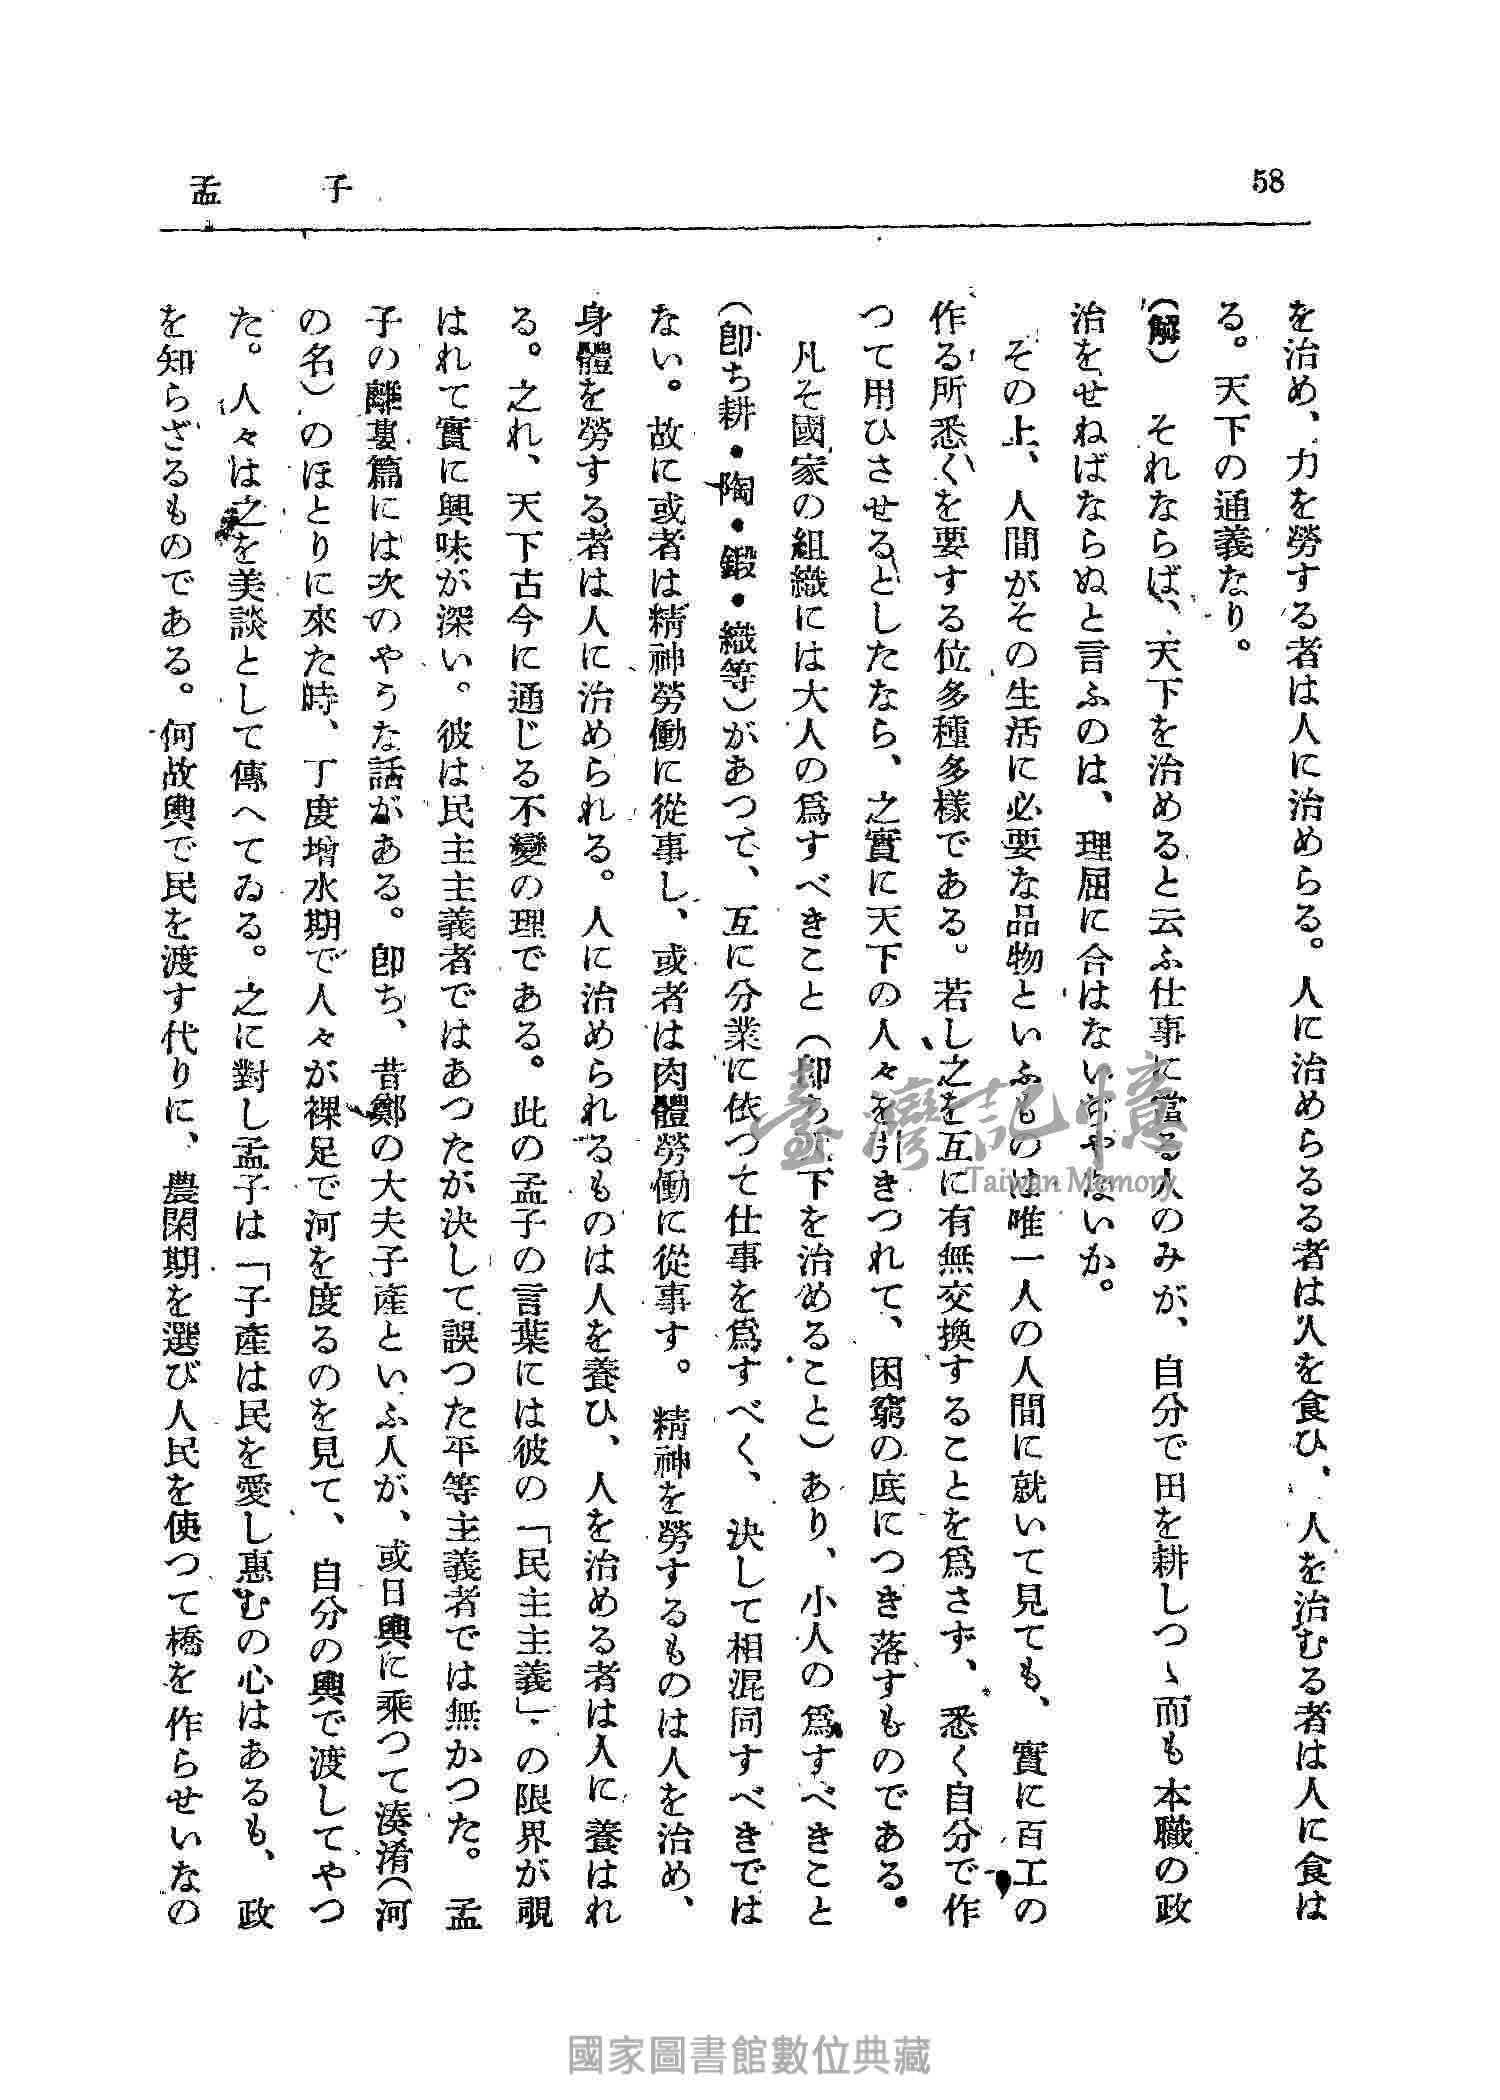 孟子
58
を治め、力を勞する者は人に治めらる。人に治めらるる者は人を食ひ、人を治むる者は人に食は
る。天下の通義なり。
(解) それならば、天下を治めると云ふ仕事に當る人のみが、自分で田を耕しつゝ而も本職の政
治をせねばならぬと言ふのは、理屈に合はないぢやないか。
その上、人間がその生活に必要な品物といふものは唯一人の人間に就いて見ても、實に百工の
作る所悉くを要する位多種多樣である。若し之を互に有無交換することを爲さず、悉く自分で作
つて用ひさせるとしたなら、之實に天下の人々を引きつれて、困窮の底につき落すものである。
凡そ國家の組織には大人の爲すべきこと(卽ち天下を治めること)あり、小人の爲すべきこと
(卽ち耕・陶・鍛・織等)があつて、互に分業に依つて仕事を爲すべく、決して相混同すべきでは
ない。故に或者は精神勞働に從事し、或者は肉體勞働に從事す。精神を勞するものは人を治め、
身體を勞する者は人に治められる。人に治められるものは人を養ひ、人を治める者は人に養はれ
る。之れ、天下古今に通じる不變の理である。此の孟子の言葉には彼の「民主主義」の限界が覗
はれて實に興味が深い。彼は民主主義者ではあつたが決して誤つた平等主義者では無かつた。孟
子の離婁篇には次のやうな話がある。卽ち、昔鄭の大夫子產といふ人が、或日輿に乘つて湊淆(河
の名)のほとりに來た時、丁度增水期で人々が裸足で河を度るのを見て、自分の輿で渡してやつ
た。人々は之を美談として傳へてゐる。之に對し孟子は「子產は民を愛し惠むの心はあるも、政
を知らざるものである。何故輿で民を渡す代りに、農閑期を選び人民を使つて橋を作らせいなの
臺灣記憶
Taiwan Memory
國家圖書館數位典藏